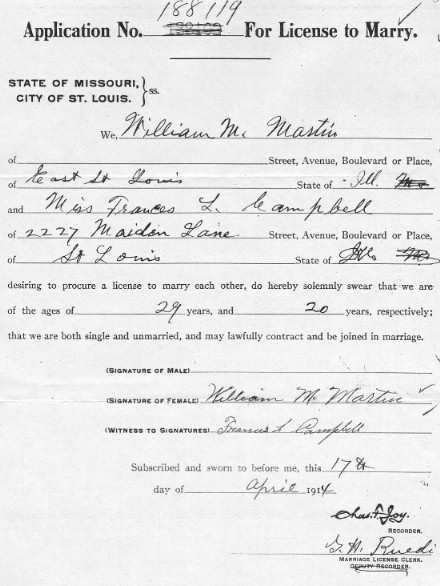 188119
Application No. For License to Marry.
STATE OF MISSOURI,
CITY OF ST. LOUIS. } ss.
We, William M. Martin
of Street, Avenue, Boulevard or Place,
of East St Louis State of Ill. Mo
and Miss Frances L. Campbell
of 2227 Maiden Lane Street, Avenue, Boulevard or Place,
of St Louis State of Mo
desiring to procure a license to marry each other, do hereby solemnly swear that we are
of the ages of 29 years, and 20 years, respectively;
that we are both single and unmarried, and may lawfully contract and be joined in marriage.
(SIGNATURE OF MALE)
(SIGNATURE OF FEMALE) William M. Martin
(WITNESS TO SIGNATURES) Frances L Campbell
Subscribed and sworn to before me, this 17th
day of April 1914
Chas. F. Joy.
RECORDER.
G. H. Ruedi
MARRIAGE LICENSE CLERK.
DEPUTY RECORDER.